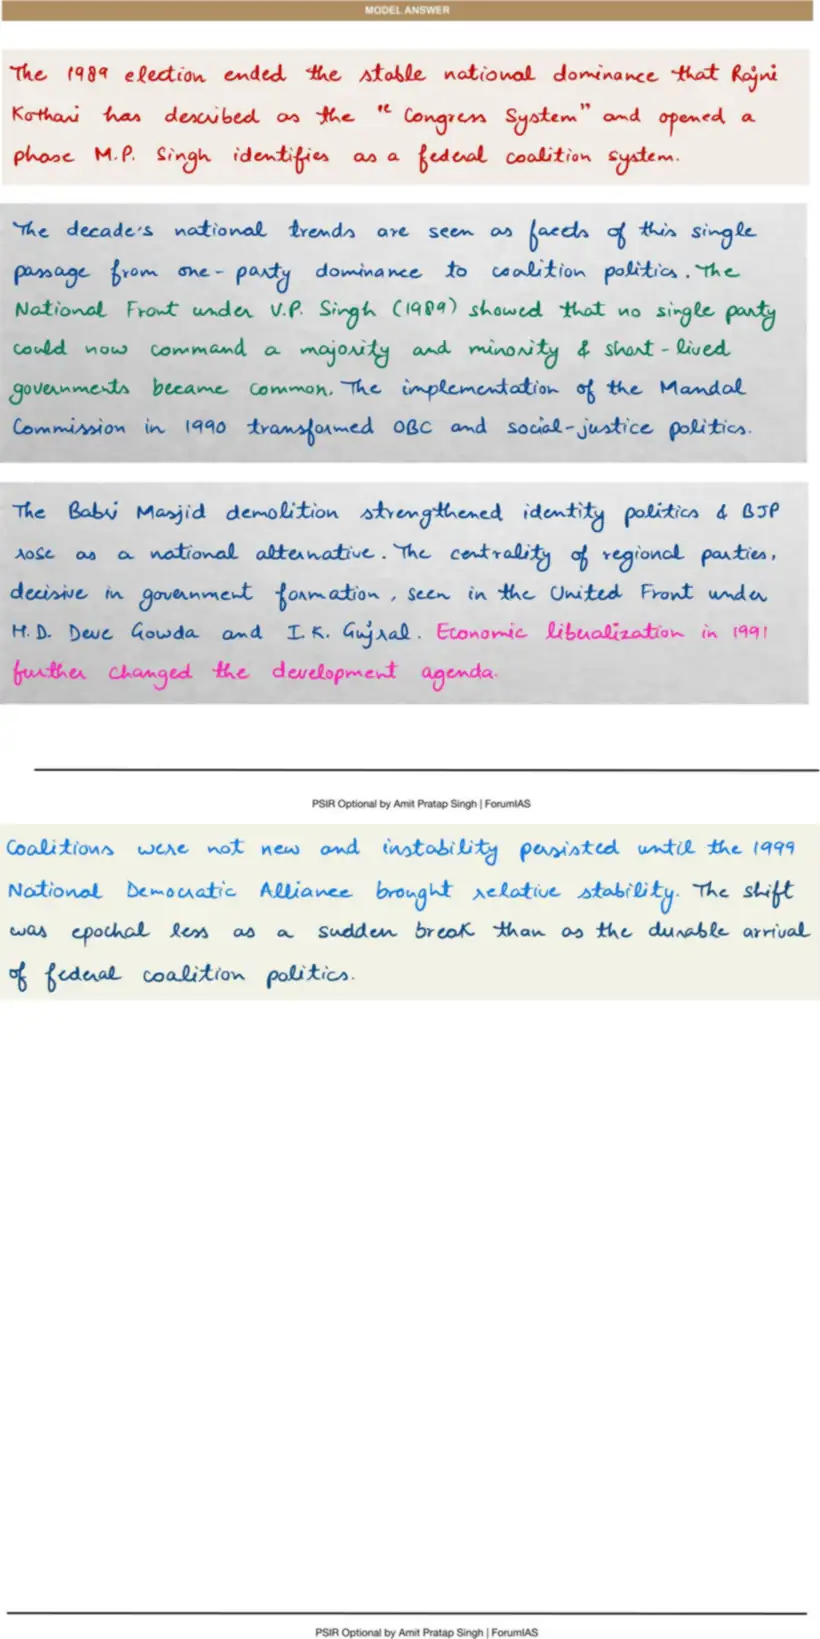 MODEL ANSWER
The 1989 election ended the stable national dominance that Rajni
Kothari has described as the "Congress System" and opened a
phase M.P. Singh identifies as a federal coalition system.
The decade's national trends are seen as facets of this single
passage from one-party dominance to coalition politics. The
National Front under V.P. Singh (1989) showed that no single party
could now command a majority and minority & short-lived
governments became common. The implementation of the Mandal
Commission in 1990 transformed OBC and social-justice politics.
The Babri Masjid demolition strengthened identity politics & BJP
rose as a national alternative. The centrality of regional parties,
decisive in government formation, seen in the United Front under
H.D. Deve Gowda and I.K. Gujral. Economic liberalization in 1991
further changed the development agenda.
PSIR Optional by Amit Pratap Singh | ForumIAS
Coalitions were not new and instability persisted until the 1999
National Democratic Alliance brought relative stability. The shift
was epochal less as a sudden break than as the durable arrival
of federal coalition politics.
PSIR Optional by Amit Pratap Singh | ForumIAS